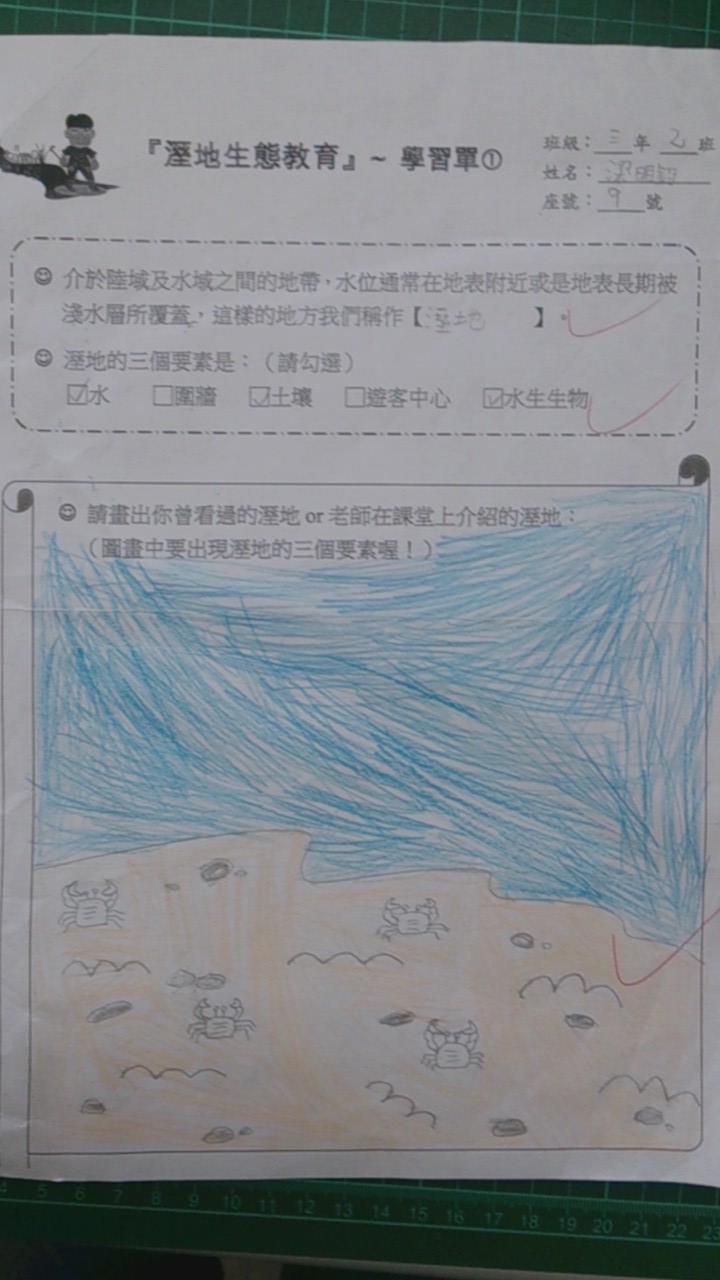 『溼地生態教育』~ 學習單①
班級：三年 乙班
姓名：梁明
座號：9號
介於陸域及水域之間的地帶，水位通常在地表附近或是地表長期被
淺水層所覆蓋，這樣的地方我們稱作【溼地】。
溼地的三個要素是：（請勾選）
☑水 □圍牆 ☑土壤 □遊客中心 ☑水生生物
請畫出你曾看過的溼地 or 老師在課堂上介紹的溼地：
（圖畫中要出現溼地的三個要素喔！）
4 5 6 7 8 9 10 11 12 13 14 15 16 17 18 19 20 21 22 23